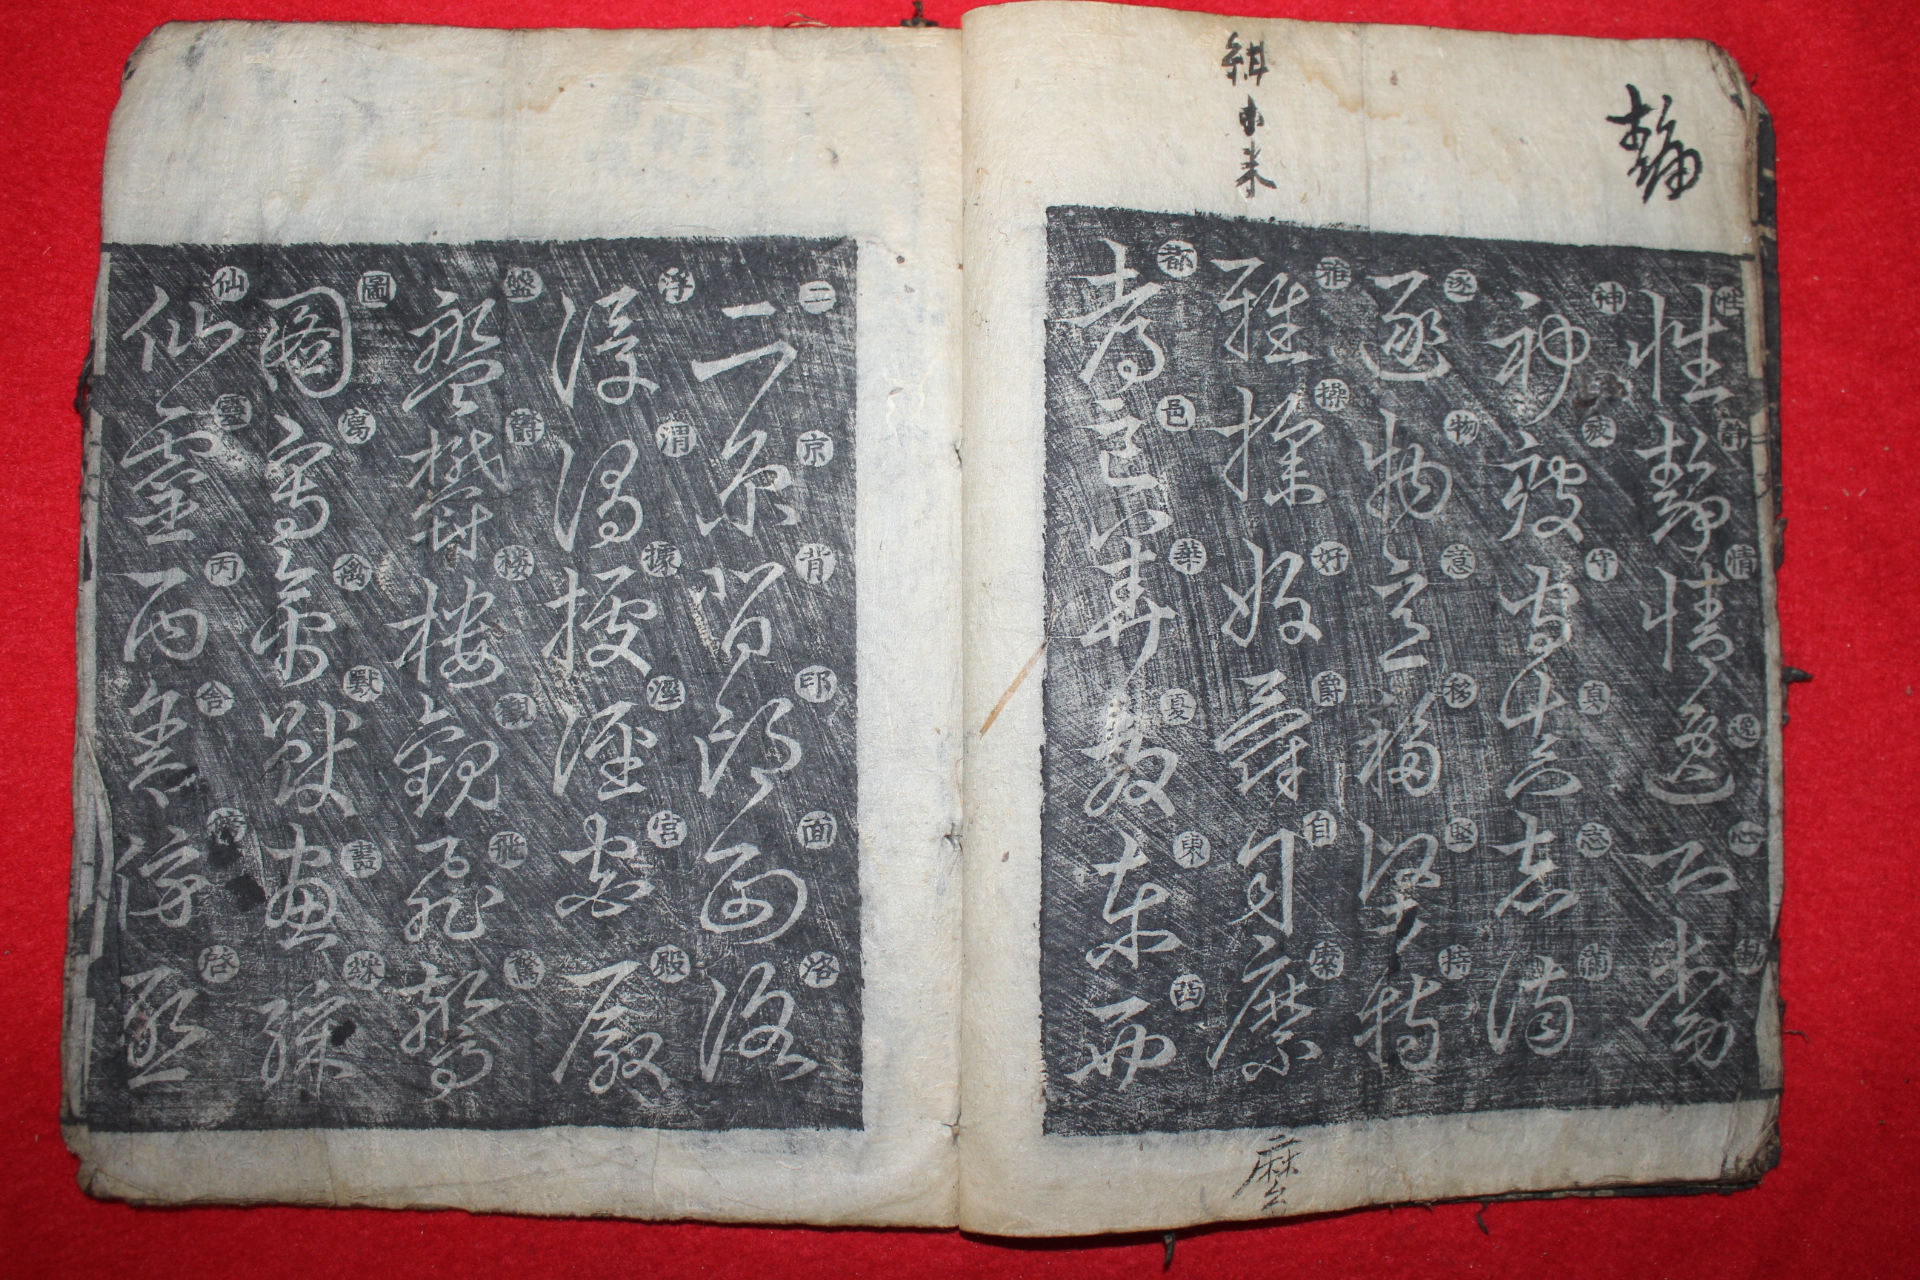 靜
性靜情逸心動
性靜情逸心動
神疲守真志滿
神疲守真志滿
逐物意移堅持
逐物意移堅持
雅操好爵自縻
雅操好爵自縻
都邑華夏東西
都邑華夏東西
麽
二京背邙面洛
二京背邙面洛
浮渭據涇宮殿
浮渭據涇宮殿
盤鬱楼觀飛驚
盤鬱樓觀飛驚
圖寫禽獸畫綵
圖寫禽獸畫綵
仙靈丙舍傍啓
仙靈丙舍傍啓